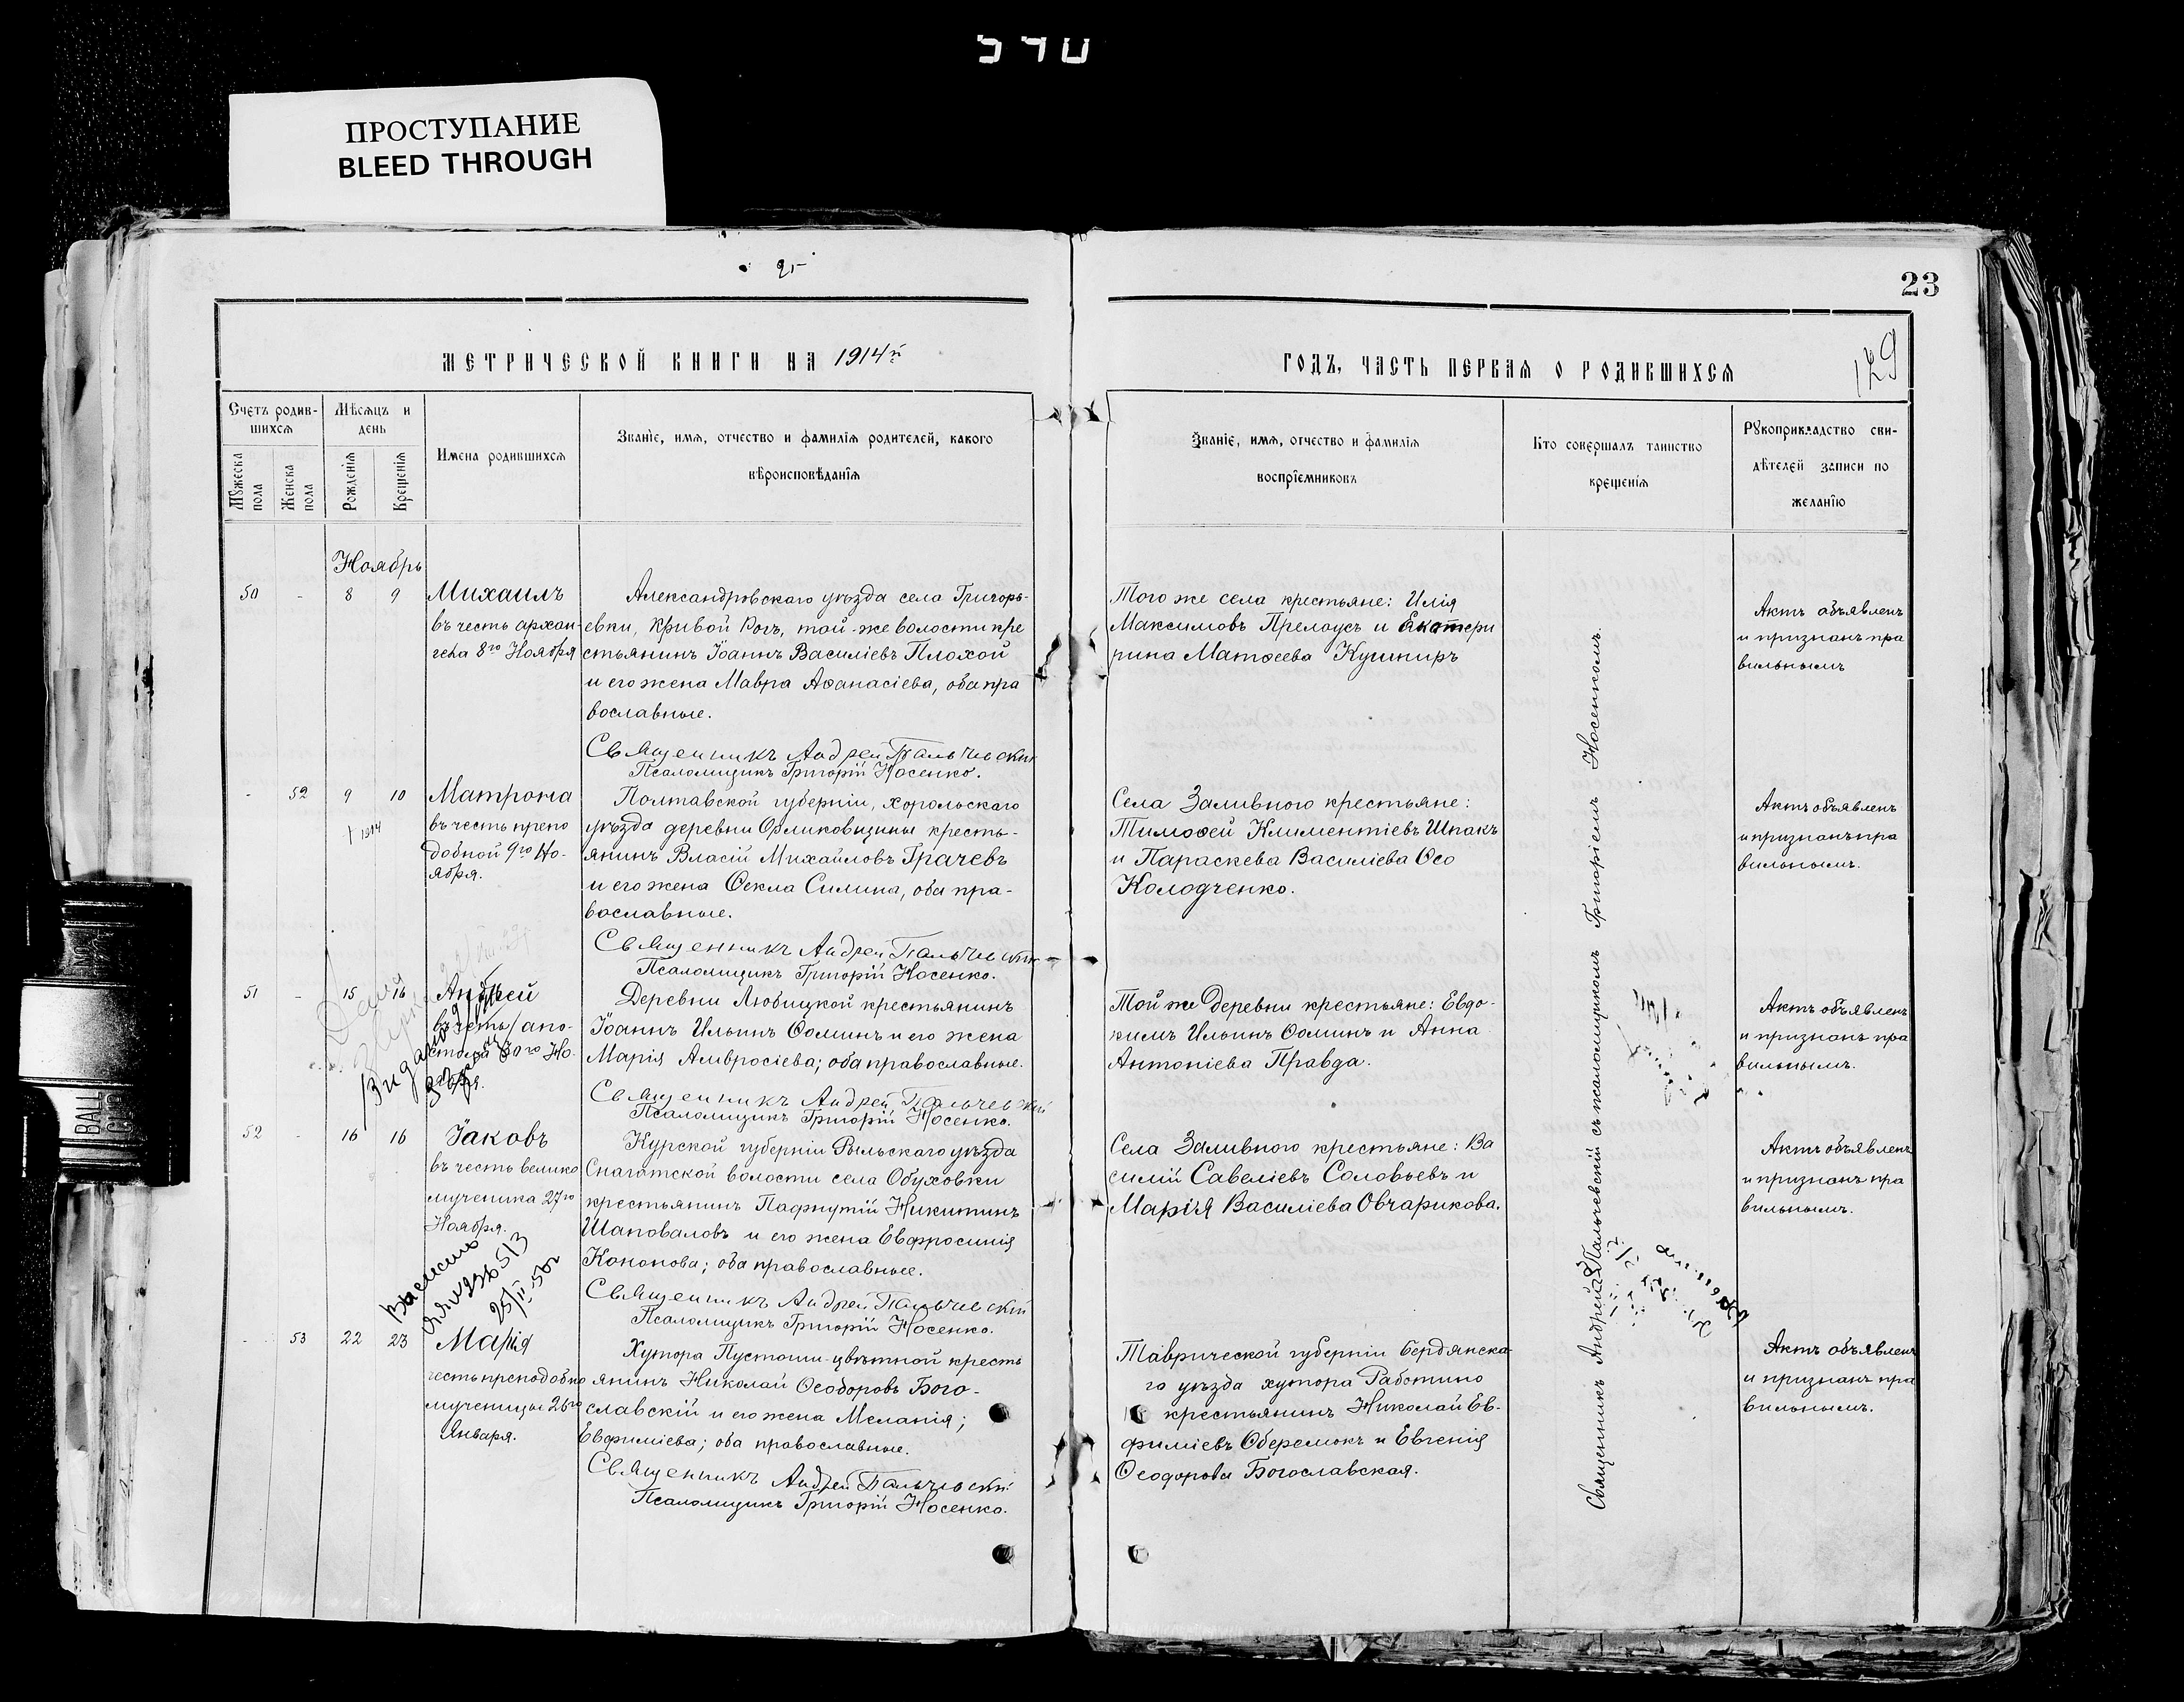 ПРОСТУПАНИЕ
BLEED THROUGH
23
129
МЕТРИЧЕСКОЙ КНИГИ НА 1914й
ГОДЪ, ЧАСТЬ ПЕРВАЯ О РОДИВШИХСЯ
Счетъ родив-
шихся
Мужеска пола
Женска пола
Мѣсяцъ и
день
Рожденія
Крещенія
Имена родившихся
Званіе, имя, отчество и фамилія родителей, какого
вѣроисповѣданія
Званіе, имя, отчество и фамилія
воспріемниковъ
Кто совершалъ таинство
крещенія
Рукоприкладство сви-
дѣтелей записи по
желанію
Ноябрь
50 - 8 9
Михаилъ
въ честь архан-
гела 8го Ноября
Александровскаго уѣзда села Григорь-
евки, Кривой Рогъ, той-же волости кре
стьянинъ Іоаннъ Василіевъ Плохой
и его жена Мавра Аѳанасіева, оба пра
вославные.
Священникъ Андрей Пальчевскій
Псаломщикъ Григорій Носенко.
Того же села крестьяне: Илія
Максимовъ Прелоусъ и Екатери
рина Матѳеева Кушниръ
Актъ объявленъ
и признанъ пра
вильнымъ
- 52 9 10
† 1914
Матрона
въ честь препо
добной 9го Но-
ября.
Полтавской губерніи, хорольскаго
уѣзда деревни Орликовщины кресть-
янинъ Власій Михайловъ Грачевъ
и его жена Ѳекла Силина, оба пра-
вославные.
Священникъ Андрей Пальчевскій
Псаломщикъ Григорій Носенко.
Села Заливного крестьяне:
Тимоѳей Климентіевъ Шпакъ
и Параскева Василіева Осо
Колодченко.
Актъ объявленъ
и признанъ пра
вильнымъ.
51 - 15 16
Андрей
въ честь апо-
стола 30го Но-
ября.
Деревни Любицкой крестьянинъ
Іоаннъ Ильинъ Ѳоминъ и его жена
Марія Амвросіева; оба православные.
Священникъ Андрей Пальчевскій
Псаломщикъ Григорій Носенко.
Той же деревни крестьяне: Евдо-
кимъ Ильинъ Ѳоминъ и Анна
Антоніева Правда.
Актъ объявленъ
и признанъ пра
вильнымъ.
52 - 16 16
Іаковъ
въ честь велико
мученика 27го
Ноября.
Курской губерніи Рыльскаго уѣзда
Снагатской волости села Обуховки
крестьянинъ Пафнутій Никитинъ
Шаповаловъ и его жена Евфросинія
Кононова; оба православные.
Священникъ Андрей Пальчевскій
Псаломщикъ Григорій Носенко.
Села Заливного крестьяне: Ва
силій Савеліевъ Соловьевъ и
Марія Василіева Овчарикова.
Актъ объявленъ
и признанъ пра
вильнымъ.
- 53 22 23
Марія
честь преподобно
мученицы 26го
Января.
Хутора Пустоши-цвѣтной кресть
янинъ Николай Ѳеодоровъ Бого-
славскій и его жена Меланія;
Евфиміева; оба православные.
Священникъ Андрей Пальчевскій
Псаломщикъ Григорій Носенко.
Таврической губерніи Бердянска-
го уѣзда хутора Работино
крестьянинъ Николай Ев-
фиміевъ Оберемокъ и Евгенія
Ѳеодорова Богославская.
Актъ объявленъ
и признанъ пра
вильнымъ.
Священникъ Андрей Пальчевскій съ псаломщикомъ Григоріемъ Носенкомъ.